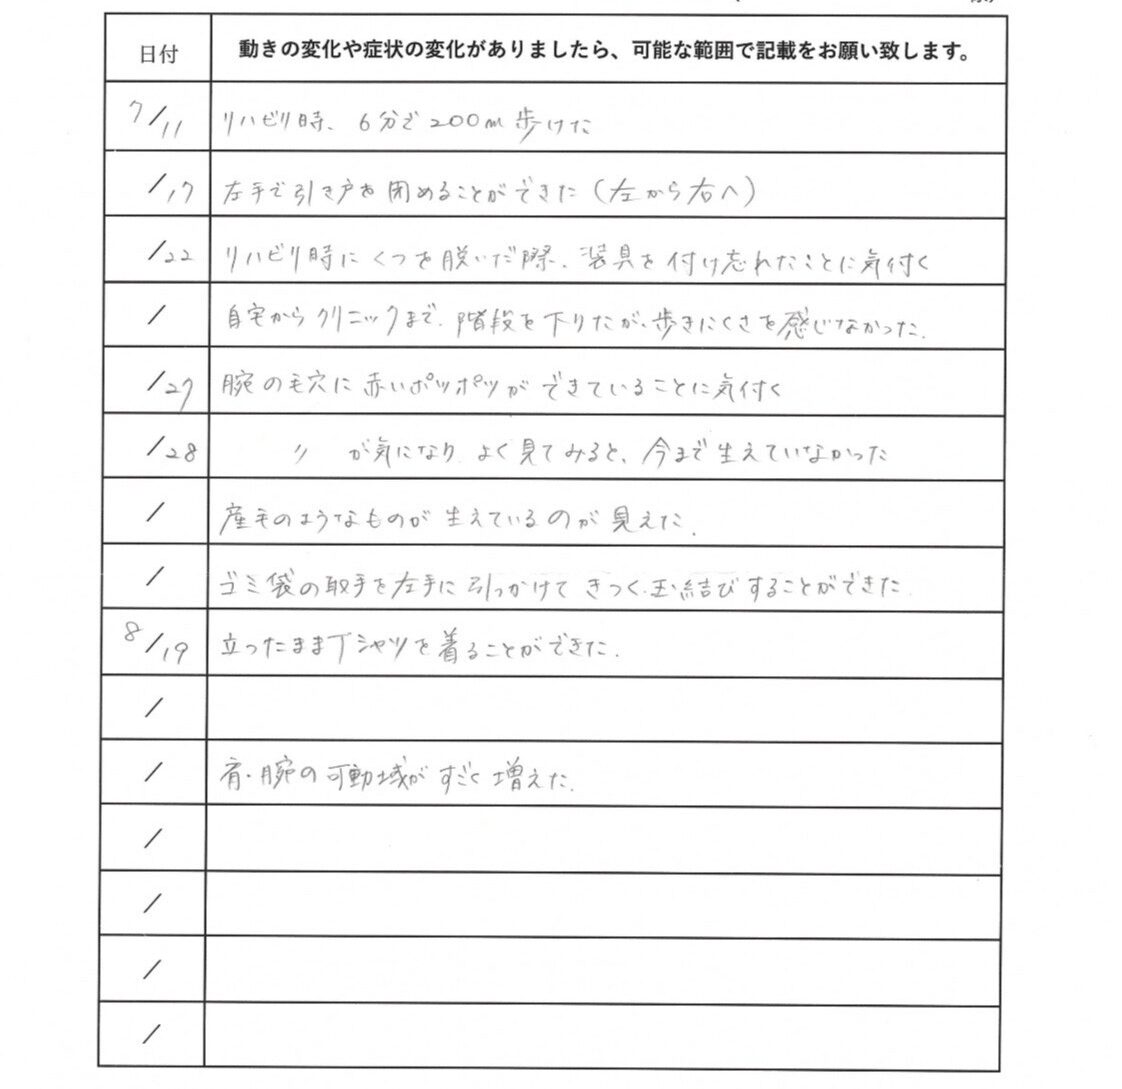 日付 動きの変化や症状の変化がありましたら、可能な範囲で記載をお願い致します。
7/11 リハビリ時、6分で200m歩けた
/17 左手で引き戸を閉めることができた(左から右へ)
/22 リハビリ時にくつを脱いだ際、装具を付け忘れたことに気付く
/ 自宅からクリニックまで、階段を下りたが、歩きにくさを感じなかった.
/27 腕の毛穴に赤いポツポツができていることに気付く
/28 〃 が気になり、よく見てみると、今まで生えていなかった
/ 産毛のようなものが生えているのが見えた.
/ ゴミ袋の取手を左手に引っかけてきつく玉結びすることができた.
8/19 立ったままTシャツを着ることができた.
/
/ 肩・腕の可動域がすごく増えた.
/
/
/
/